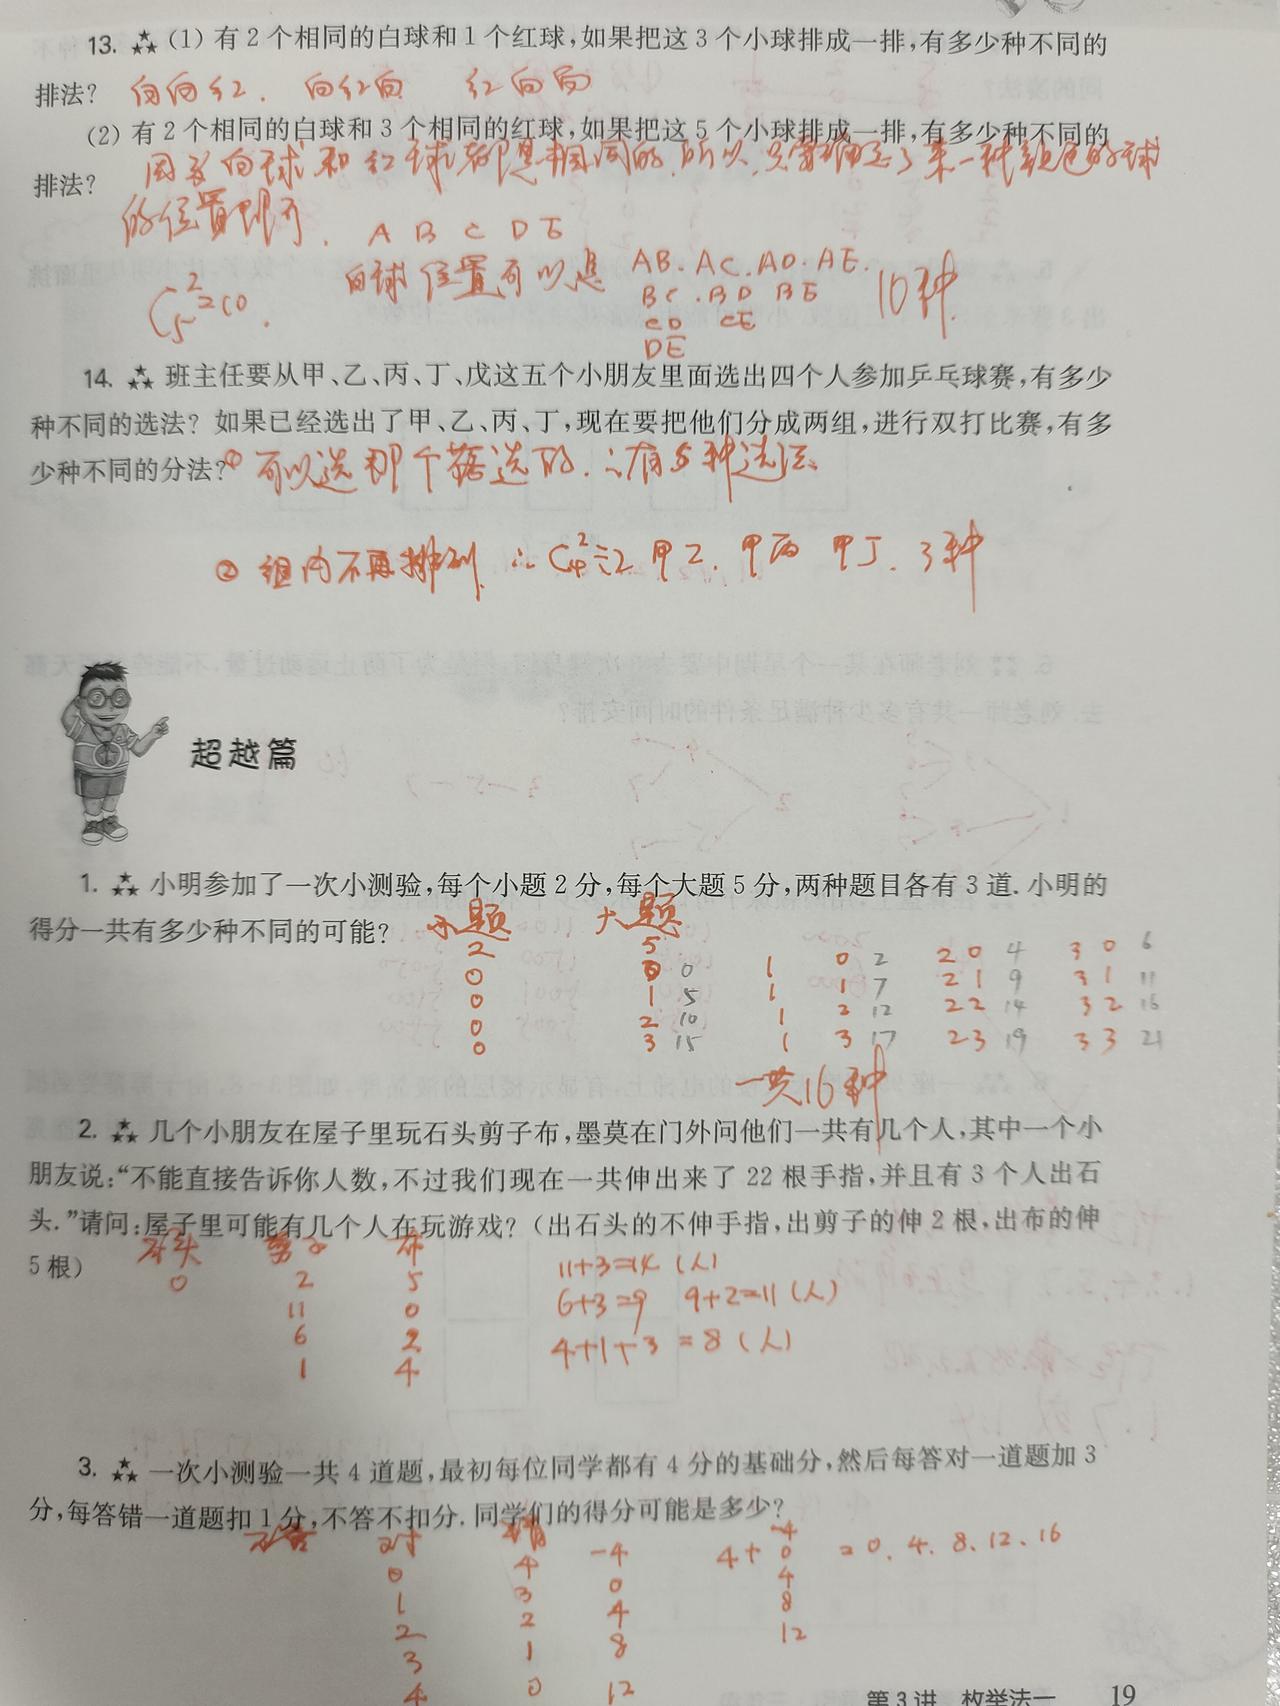 13. (1) 有2个相同的白球和1个红球,如果把这3个小球排成一排,有多少种不同的
排法? 白白红. 白红白 红白白
(2) 有2个相同的白球和3个相同的红球,如果把这5个小球排成一排,有多少种不同的
因为白球和红球都是相同的,所以,只需确定了某一种颜色的球
排法?
的位置即可. A B C D E
白球位置可以是 AB. AC. AD. AE. 10种.
C₅²=10. BC. BD BE
CD CE
DE
14. 班主任要从甲、乙、丙、丁、戊这五个小朋友里面选出四个人参加乒乓球赛,有多少
种不同的选法?如果已经选出了甲、乙、丙、丁,现在要把他们分成两组,进行双打比赛,有多
少种不同的分法? ① 可以选那个落选的. ∴有5种选法.
② 组内不再排列. ∴C₄²÷2 甲乙. 甲丙 甲丁. 3种
超越篇
1. 小明参加了一次小测验,每个小题2分,每个大题5分,两种题目各有3道.小明的
得分一共有多少种不同的可能? 小题 大题
2 5
0 0 0 1 0 2 2 0 4 3 0 6
0 1 5 1 1 7 2 1 9 3 1 11
0 2 10 1 2 12 2 2 14 3 2 16
0 3 15 1 3 17 2 3 19 3 3 21
一共16种
2. 几个小朋友在屋子里玩石头剪子布,墨莫在门外问他们一共有几个人,其中一个小
朋友说:“不能直接告诉你人数,不过我们现在一共伸出来了22根手指,并且有3个人出石
头.”请问:屋子里可能有几个人在玩游戏?(出石头的不伸手指,出剪子的伸2根,出布的伸
5根) 石头 剪子 布
0 2 5 11+3=14(人)
11 0 6+3=9 9+2=11(人)
6 2 4+1+3=8(人)
1 4
3. 一次小测验一共4道题,最初每位同学都有4分的基础分,然后每答对一道题加3
分,每答错一道题扣1分,不答不扣分.同学们的得分可能是多少?
不答 对 错 -4
0 4 -4 4+ 0 =0. 4. 8. 12. 16
1 3 0 4
2 2 4 8
3 1 8 12
4 0 12
第3讲 枚举法一 19